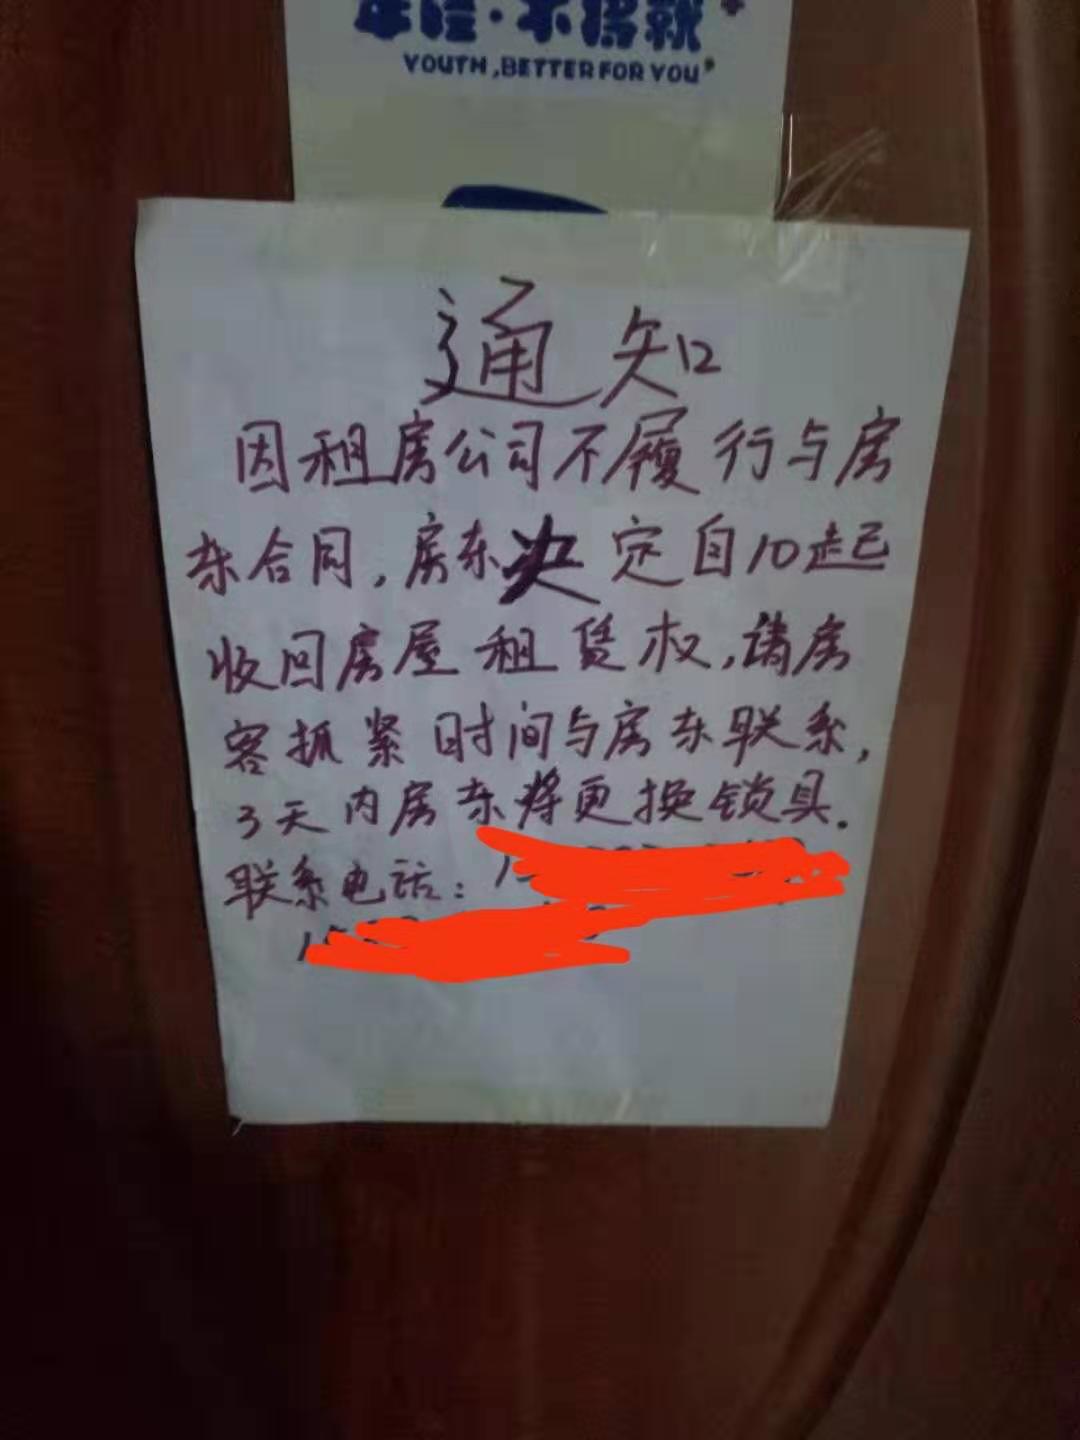 年轻·不将就
YOUTH,BETTER FOR YOU
通知
因租房公司不履行与房
东合同,房东决定自10起
收回房屋租赁权,请房
客抓紧时间与房东联系,
3天内房东将更换锁具.
联系电话: